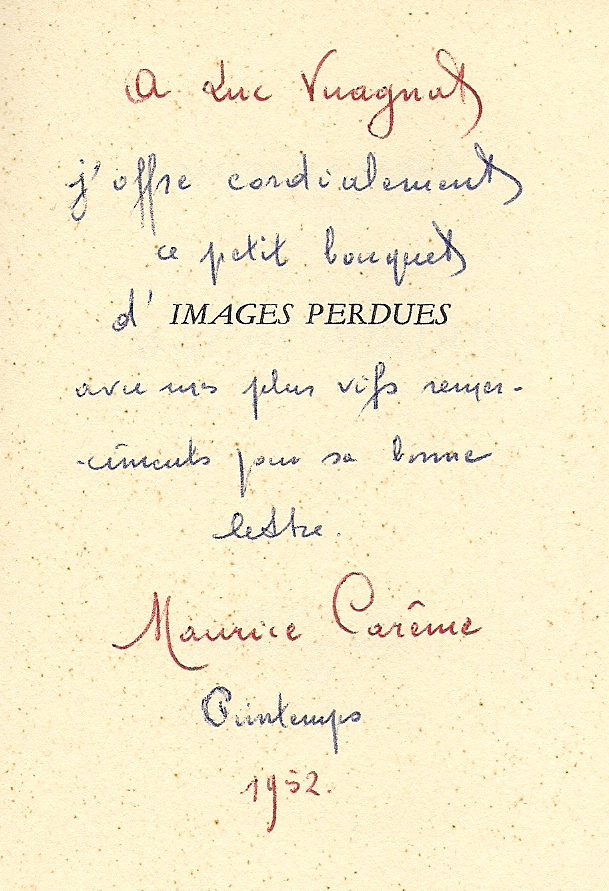 A Luc Vuagnat
j'offre cordialement
ce petit bouquet
d' IMAGES PERDUES
avec mes plus vifs remer-
-ciments pour sa bonne
lettre.
Maurice Carême
Printemps
1952.